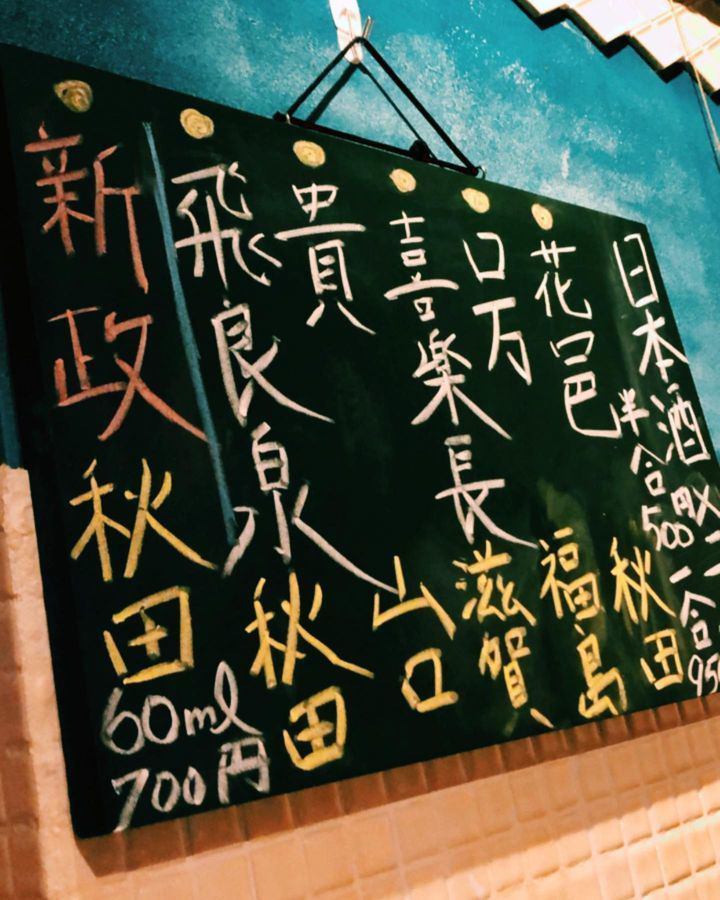 日本酒メニュー
半合500円
一合950
花邑 秋田
口万 福島
喜楽長 滋賀
貴 山口
飛良泉 秋田
新政 秋田
60ml
700円